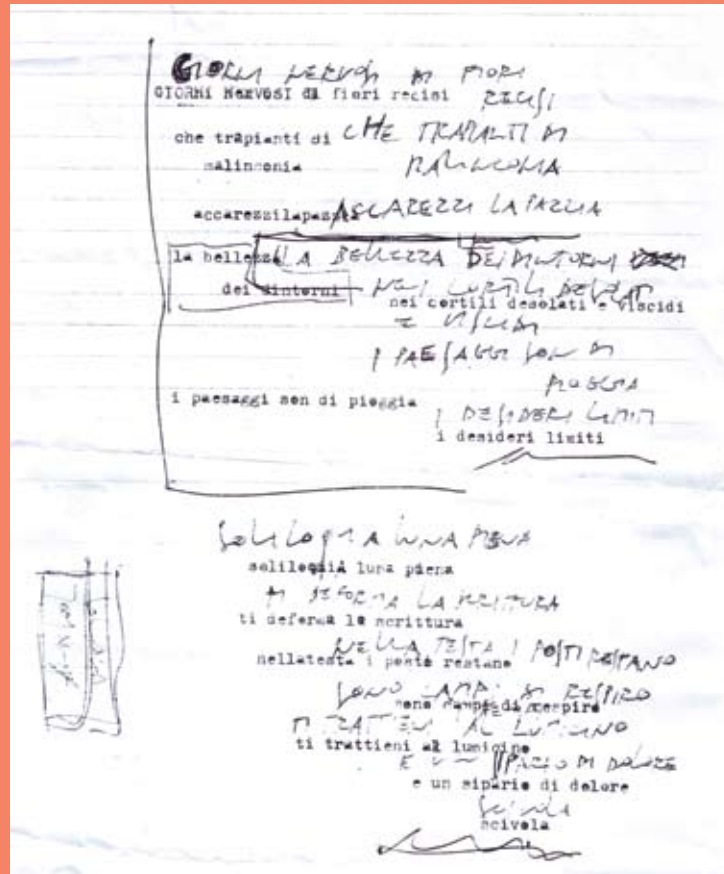 GIORNI NERVOSI DI FIORI
GIORNI NERVOSI di fiori recisi RECISI
che trapianti di CHE TRAPIANTI DI
malinconia MALINCONIA
accarezzilapazzia ACCAREZZI LA PAZZIA
la bellezza LA BELLEZZA DEI DINTORNI
dei dintorni NEI CORTILI DESOLATI
nei cortili desolati e viscidi
E VISCIDI
I PAESAGGI SON DI
PIOGGIA
i paesaggi son di pioggia
I DESIDERI LIMITI
i desideri limiti
SOLILOQUIA LUNA PIENA
soliloquiA luna piena
TI DEFORMA LA SCRITTURA
ti deforma la scrittura
NELLA TESTA I POSTI RESTANO
nellatesta i posti restano
SONO CAMPI DI RESPIRO
sono campi di respiro
TI TRATTIENI AL LUMICINO
ti trattieni al lumicino
E UN SIPARIO DI DOLORE
e un sipario di dolore
SCIVOLA
scivola